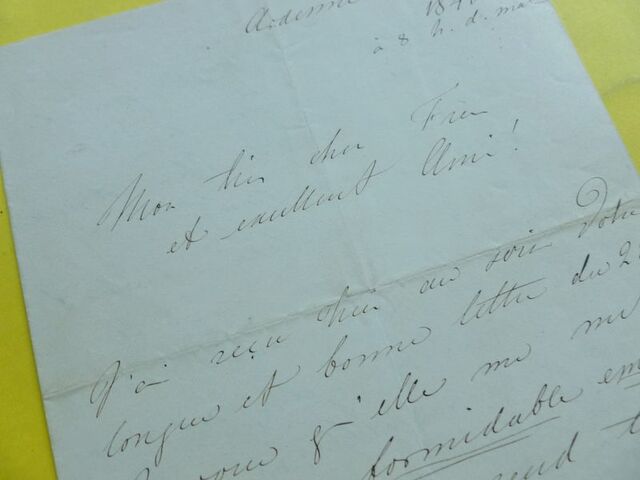 Ardenne 18
à 8 h. d. mat
Mon très cher Frère
et excellent Ami!
J'ai reçu hier au soir Votre
longue et bonne lettre du 2
q'elle me me
formidable em
rend